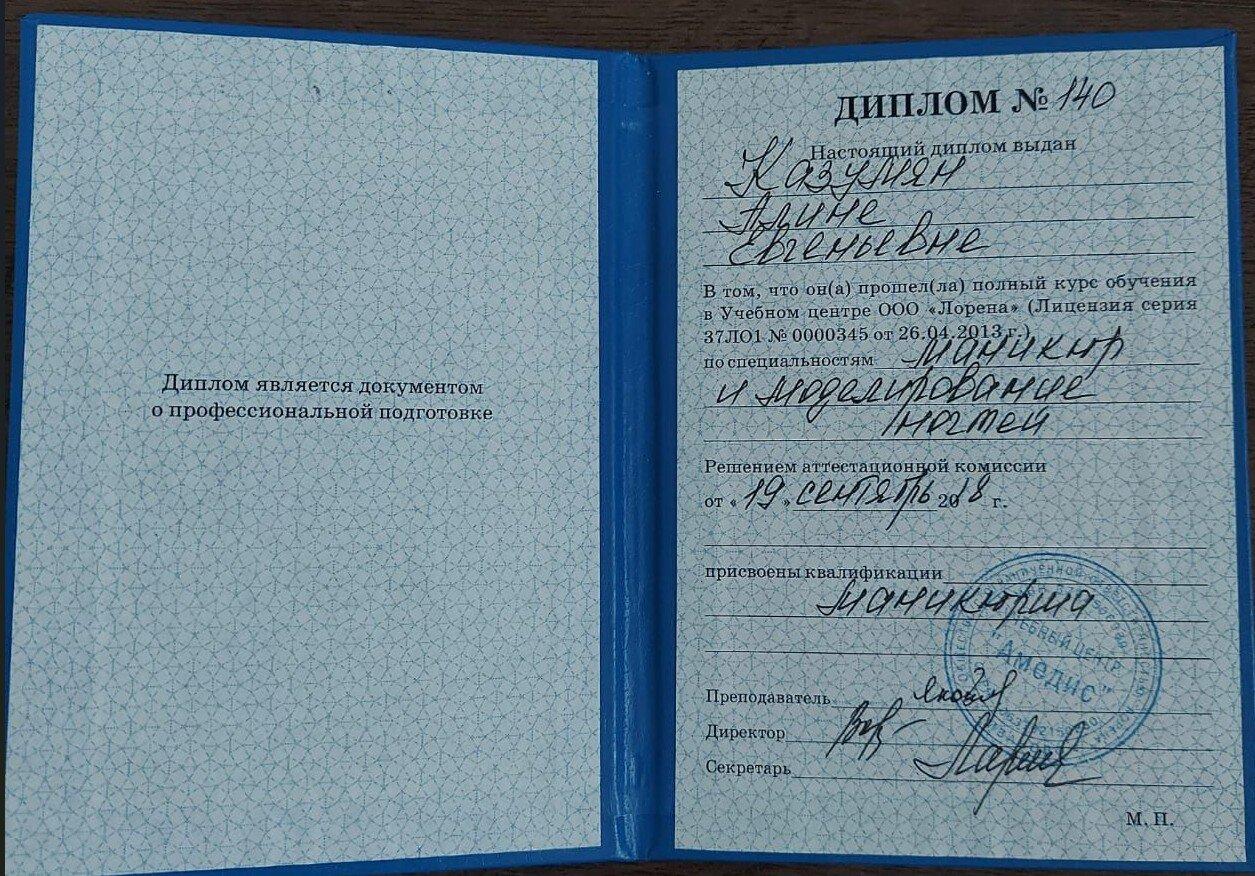 Диплом является документом
о профессиональной подготовке
ДИПЛОМ № 140
Настоящий диплом выдан
Казумян
Алине
Евгеньевне
В том, что он(а) прошел(ла) полный курс обучения
в Учебном центре ООО «Лорена» (Лицензия серия
37ЛО1 № 0000345 от 26.04.2013 г.)
по специальностям маникюр
и моделирование
ногтей
Решением аттестационной комиссии
от «19» сентябрь 2018 г.
присвоены квалификации
маникюрша
УЧЕБНЫЙ ЦЕНТР
"Амедис"
Преподаватель
Директор
Секретарь
М. П.